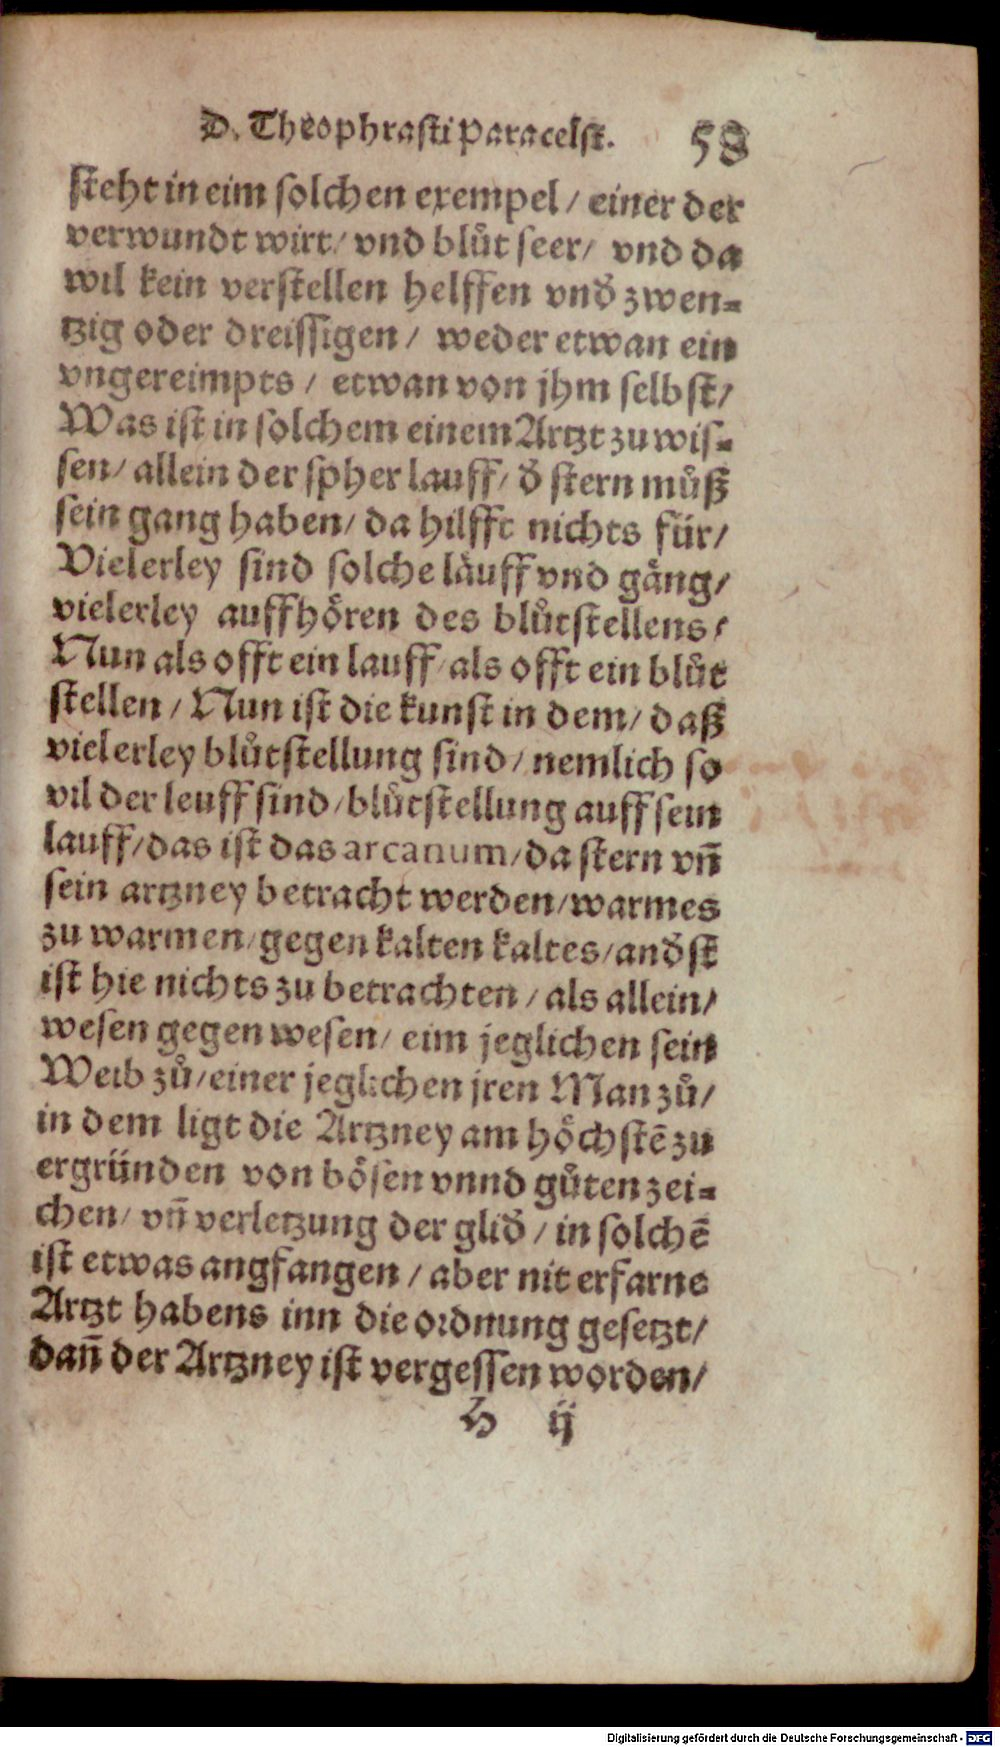 D. Theophrasti Paracelsi. 58
steht in eim solchen exempel / einer der
verwundt wirt / vnd blůt seer / vnd da
wil kein verstellen helffen vnd̕ zwen-
tzig oder dreissigen / weder etwan ein
vngereimpts / etwan von jhm selbst /
Was ist in solchem einem Artzt zu wis-
sen / allein der spher lauff / d̕ stern můß
sein gang haben / da hilfft nichts für /
Vielerley sind solche läuff vnd gäng /
vielerley auffhören des blůtstellens /
Nun als offt ein lauff / als offt ein blůt
stellen / Nun ist die kunst in dem / daß
vielerley blůtstellung sind / nemlich so
vil der leuff sind / blůtstellung auff sein
lauff / das ist das arcanum / da stern vn̄
sein artzney betracht werden / warmes
zu warmen / gegen kalten kaltes / and̕st
ist hie nichts zu betrachten / als allein /
wesen gegen wesen / eim jeglichen sein
Weib zů / einer jeglichen jren Man zů /
in dem ligt die Artzney am höchstē zu
ergründen von bösen vnnd gůten zei-
chen / vn̄ verletzung der glid̕ / in solchē
ist etwas angfangen / aber nit erfarne
Artzt habens inn die ordnung gesetzt /
dan̄ der Artzney ist vergessen worden /
H ij
Digitalisierung gefördert durch die Deutsche Forschungsgemeinschaft - DFG